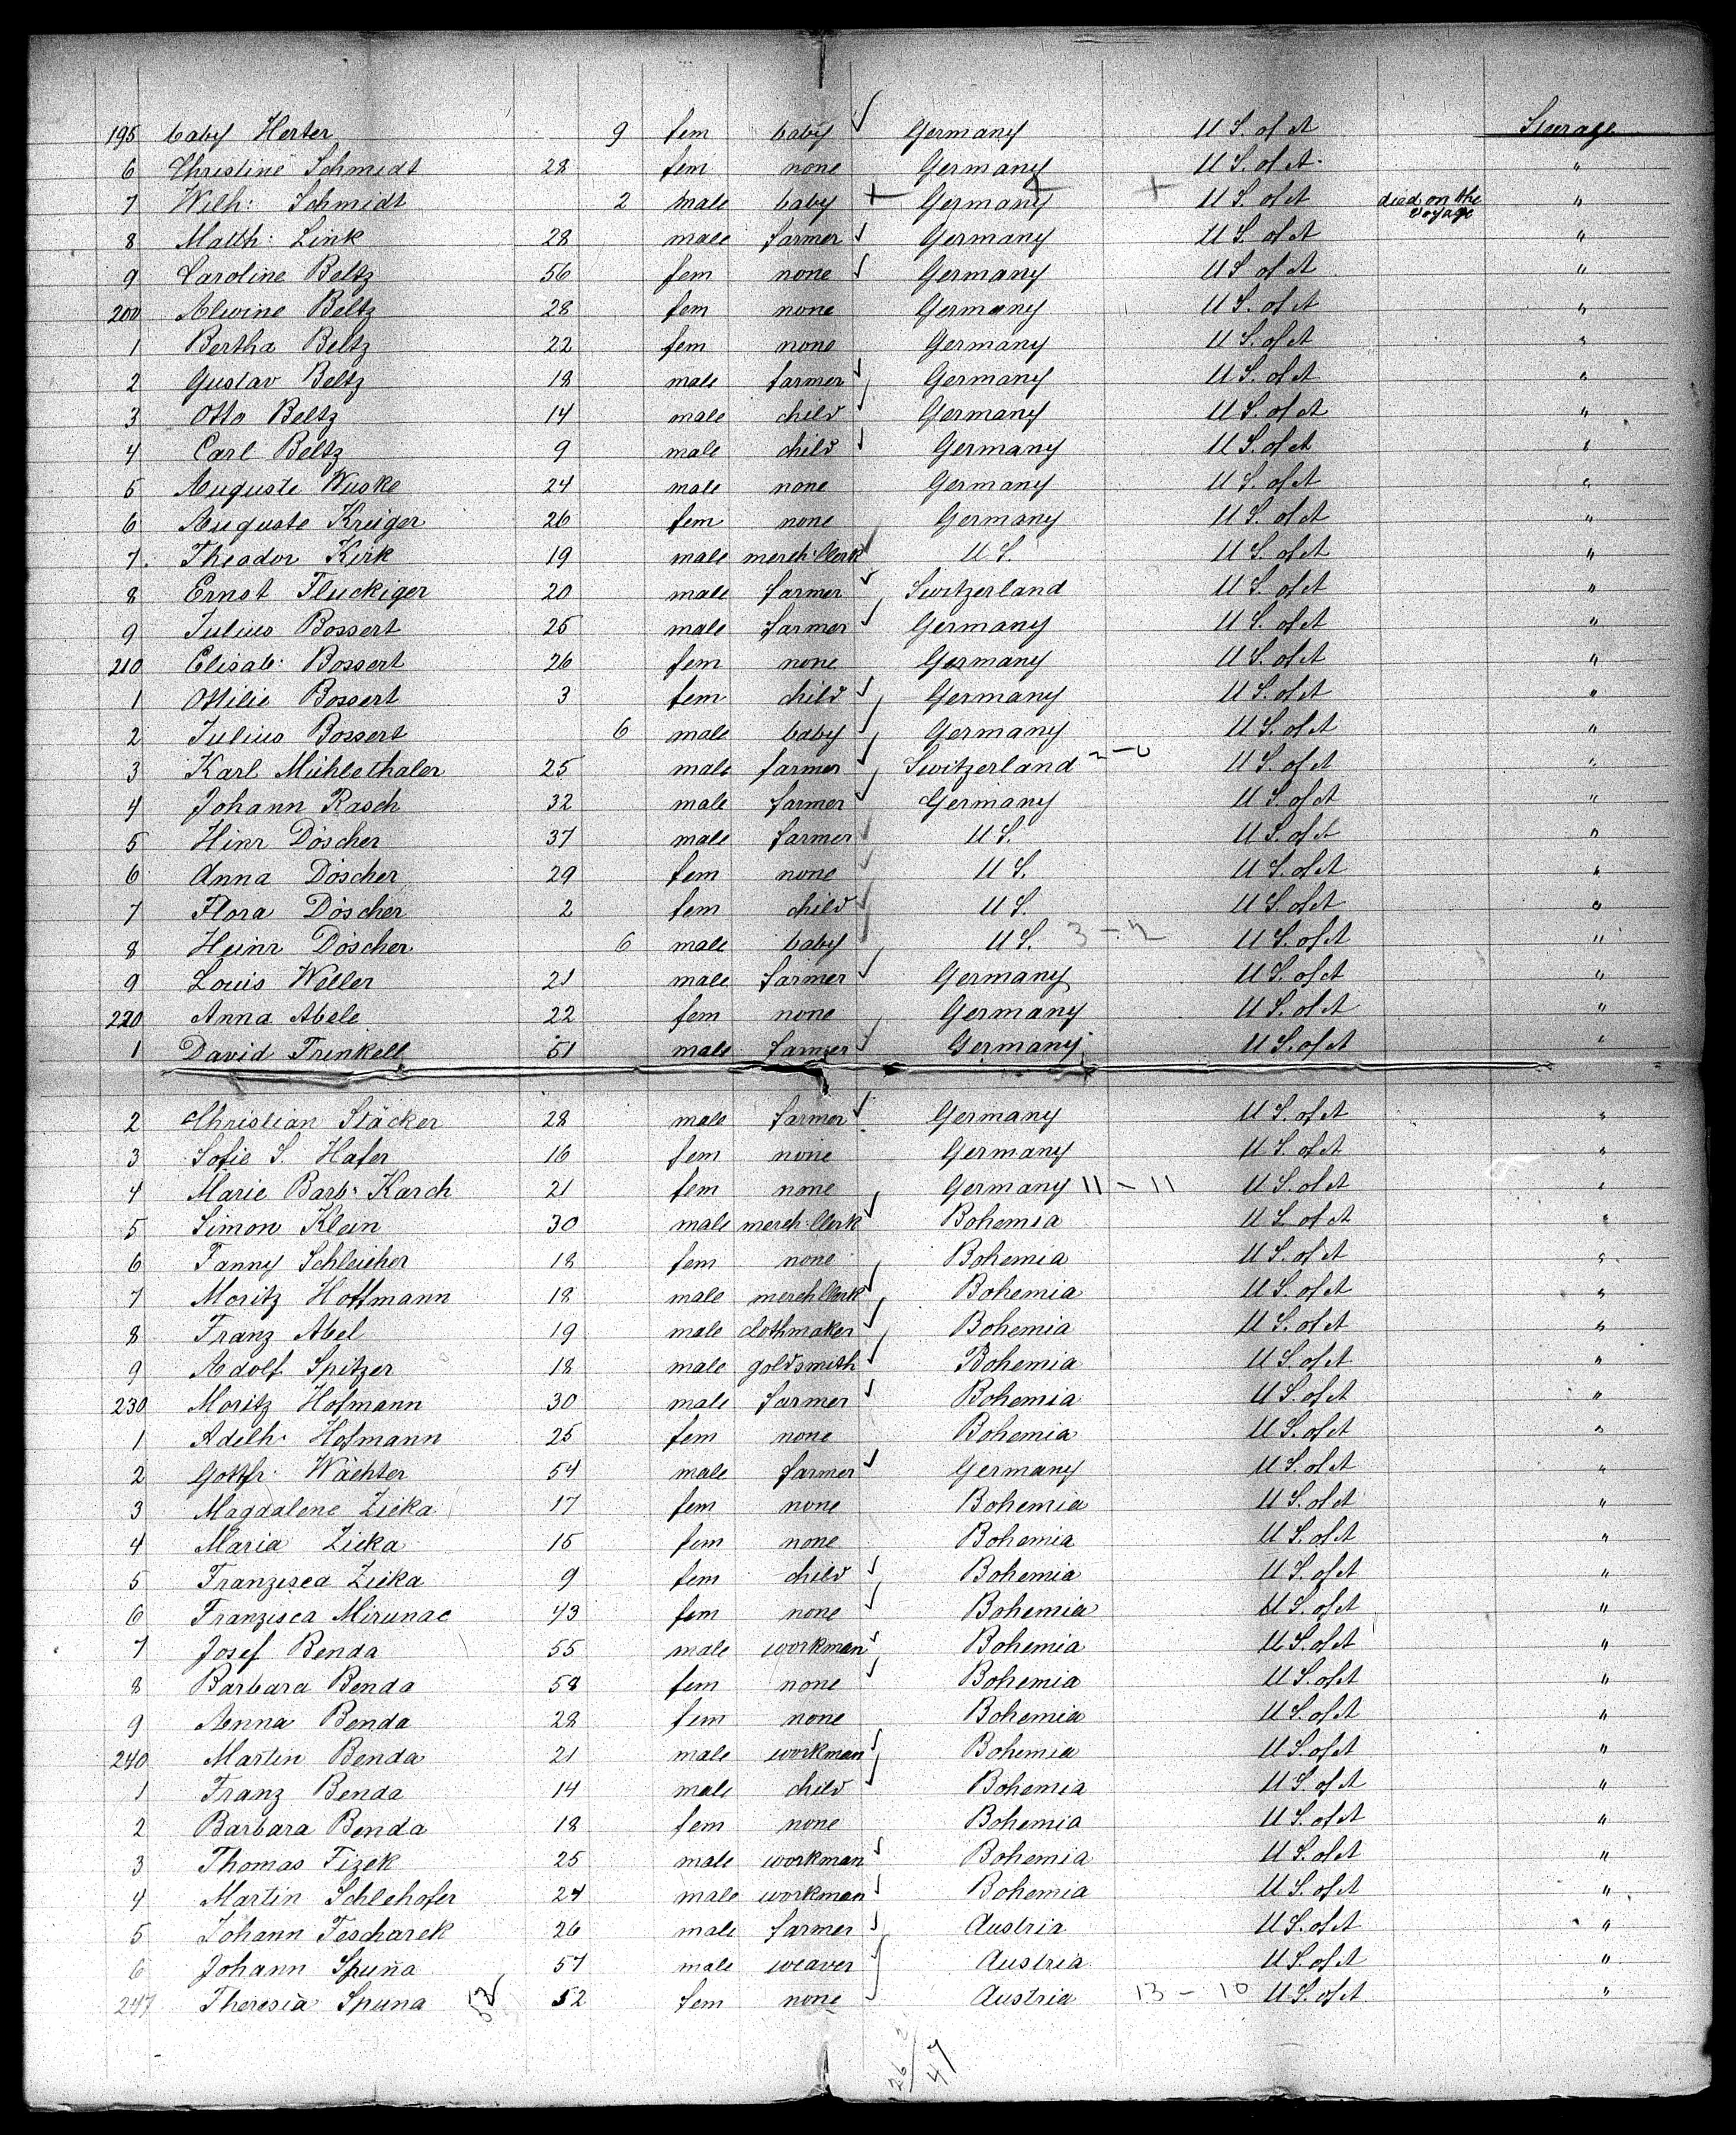 195 baby Herter 9 fem baby ✓ Germany U S. of A Steerage
6 Christine Schmidt 28 fem none Germany U S. of A. "
7 Wilh: Schmidt 2 male baby + Germany + U S. of A died on the voyage "
8 Matth: Link 28 male farmer ✓ Germany U S. of A "
9 Caroline Beltz 56 fem none ✓ Germany U S. of A "
200 Alwine Beltz 28 fem none Germany U S. of A "
1 Bertha Beltz 22 fem none Germany U S. of A "
2 Gustav Beltz 18 male farmer ✓ Germany U S. of A "
3 Otto Beltz 14 male child ✓ Germany U S. of A "
4 Carl Beltz 9 male child ✓ Germany U S. of A "
5 Auguste Wuske 24 male none Germany U S. of A "
6 Auguste Krüger 26 fem none Germany U S. of A "
7. Theodor Kirk 19 male merch. Clerk ✓ U S. U S. of A "
8 Ernst Fluckiger 20 male farmer ✓ Switzerland U S. of A "
9 Julius Bossert 25 male farmer ✓ Germany U S. of A "
210 Elisab: Bossert 26 fem none Germany U S. of A "
1 Ottilie Bossert 3 fem child ✓ Germany U S. of A "
2 Julius Bossert 6 male baby ✓ Germany U S. of A "
3 Karl Mühlethaler 25 male farmer ✓ Switzerland 2 - 0 U S. of A "
4 Johann Rasch 32 male farmer ✓ Germany U S. of A "
5 Hinr Döscher 37 male farmer ✓ U S. U S. of A "
6 Anna Döscher 29 fem none ✓ U S. U S. of A "
7 Flora Döscher 2 fem child ✓ U S. U S. of A "
8 Heinr Döscher 6 male baby U S. 3 - 2 U S. of A "
9 Louis Weller 21 male farmer ✓ Germany U S. of A "
220 Anna Abele 22 fem none Germany U S. of A "
1 David Trinkell 51 male farmer ✓ Germany U S. of A "
2 Christian Stäcker 28 male farmer ✓ Germany U S. of A "
3 Sofie S. Hafer 16 fem none Germany U S. of A "
4 Marie Barb: Karch 21 fem none Germany 11 - 11 U S. of A "
5 Simon Klein 30 male merch. Clerk ✓ Bohemia U S. of A "
6 Fanny Schleicher 18 fem none Bohemia U S. of A "
7 Moritz Hoffmann 18 male merch Clerk ✓ Bohemia U S. of A "
8 Franz Abel 19 male clothmaker ✓ Bohemia U S. of A "
9 Adolf Spitzer 18 male goldsmith ✓ Bohemia U S. of A "
230 Moritz Hofmann 30 male farmer ✓ Bohemia U S. of A "
1 Adelh: Hofmann 25 fem none Bohemia U S. of A "
2 Gottfr: Wächter 54 male farmer ✓ Germany U S. of A "
3 Magdalene Zicka 17 fem none Bohemia U S. of A "
4 Maria Zicka 15 fem none Bohemia U S. of A "
5 Franzisca Zicka 9 fem child ✓ Bohemia U S. of A "
6 Franzisca Mirunac 43 fem none ✓ Bohemia U S. of A "
7 Josef Benda 55 male workman ✓ Bohemia U S. of A "
8 Barbara Benda 58 fem none ✓ Bohemia U S. of A "
9 Anna Benda 28 fem none Bohemia U S. of A "
240 Martin Benda 21 male workman ✓ Bohemia U S. of A "
1 Franz Benda 14 male child ✓ Bohemia U S. of A "
2 Barbara Benda 18 fem none Bohemia U S. of A "
3 Thomas Fizek 25 male workman ✓ Bohemia U S. of A "
4 Martin Schlehofer 24 male workman ✓ Bohemia U S. of A "
5 Johann Fescharek 26 male farmer ✓ Austria U S. of A "
6 Johann Spuña 57 male weaver ✓ Austria U S. of A "
247 Theresia Spuna 53 52 fem none ✓ Austria 13 - 10 U S. of A "
47